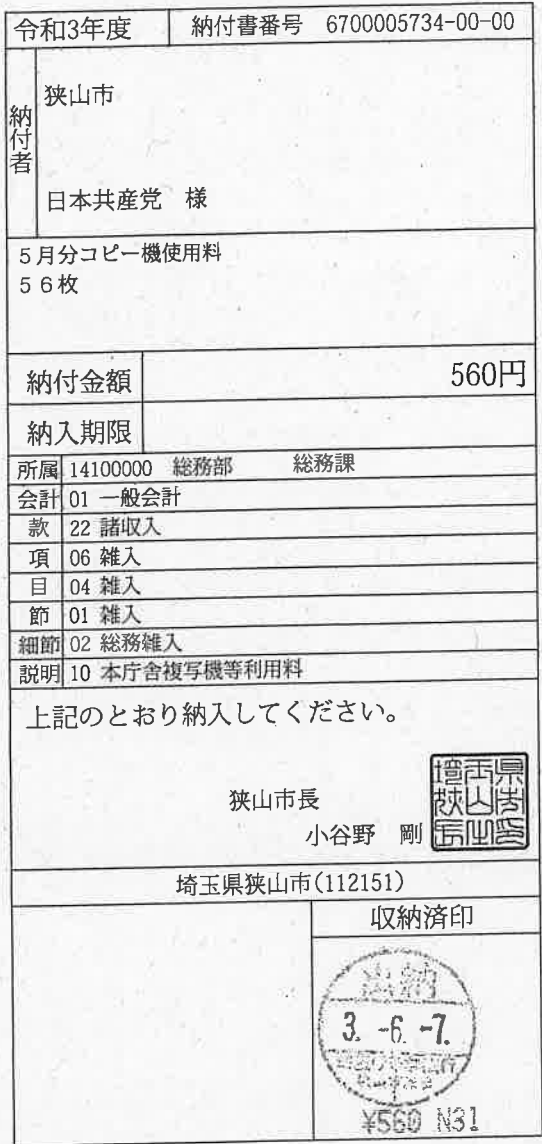 令和3年度 納付書番号 6700005734-00-00
納付者
狭山市
日本共産党 様
5月分コピー機使用料
56枚
納付金額 560円
納入期限
所属 14100000 総務部 総務課
会計 01 一般会計
款 22 諸収入
項 06 雑入
目 04 雑入
節 01 雑入
細節 02 総務雑入
説明 10 本庁舎複写機等利用料
上記のとおり納入してください。
狭山市長
小谷野 剛
埼玉県狭山市(112151)
収納済印
出納
3. -6. -7.
¥560 N31